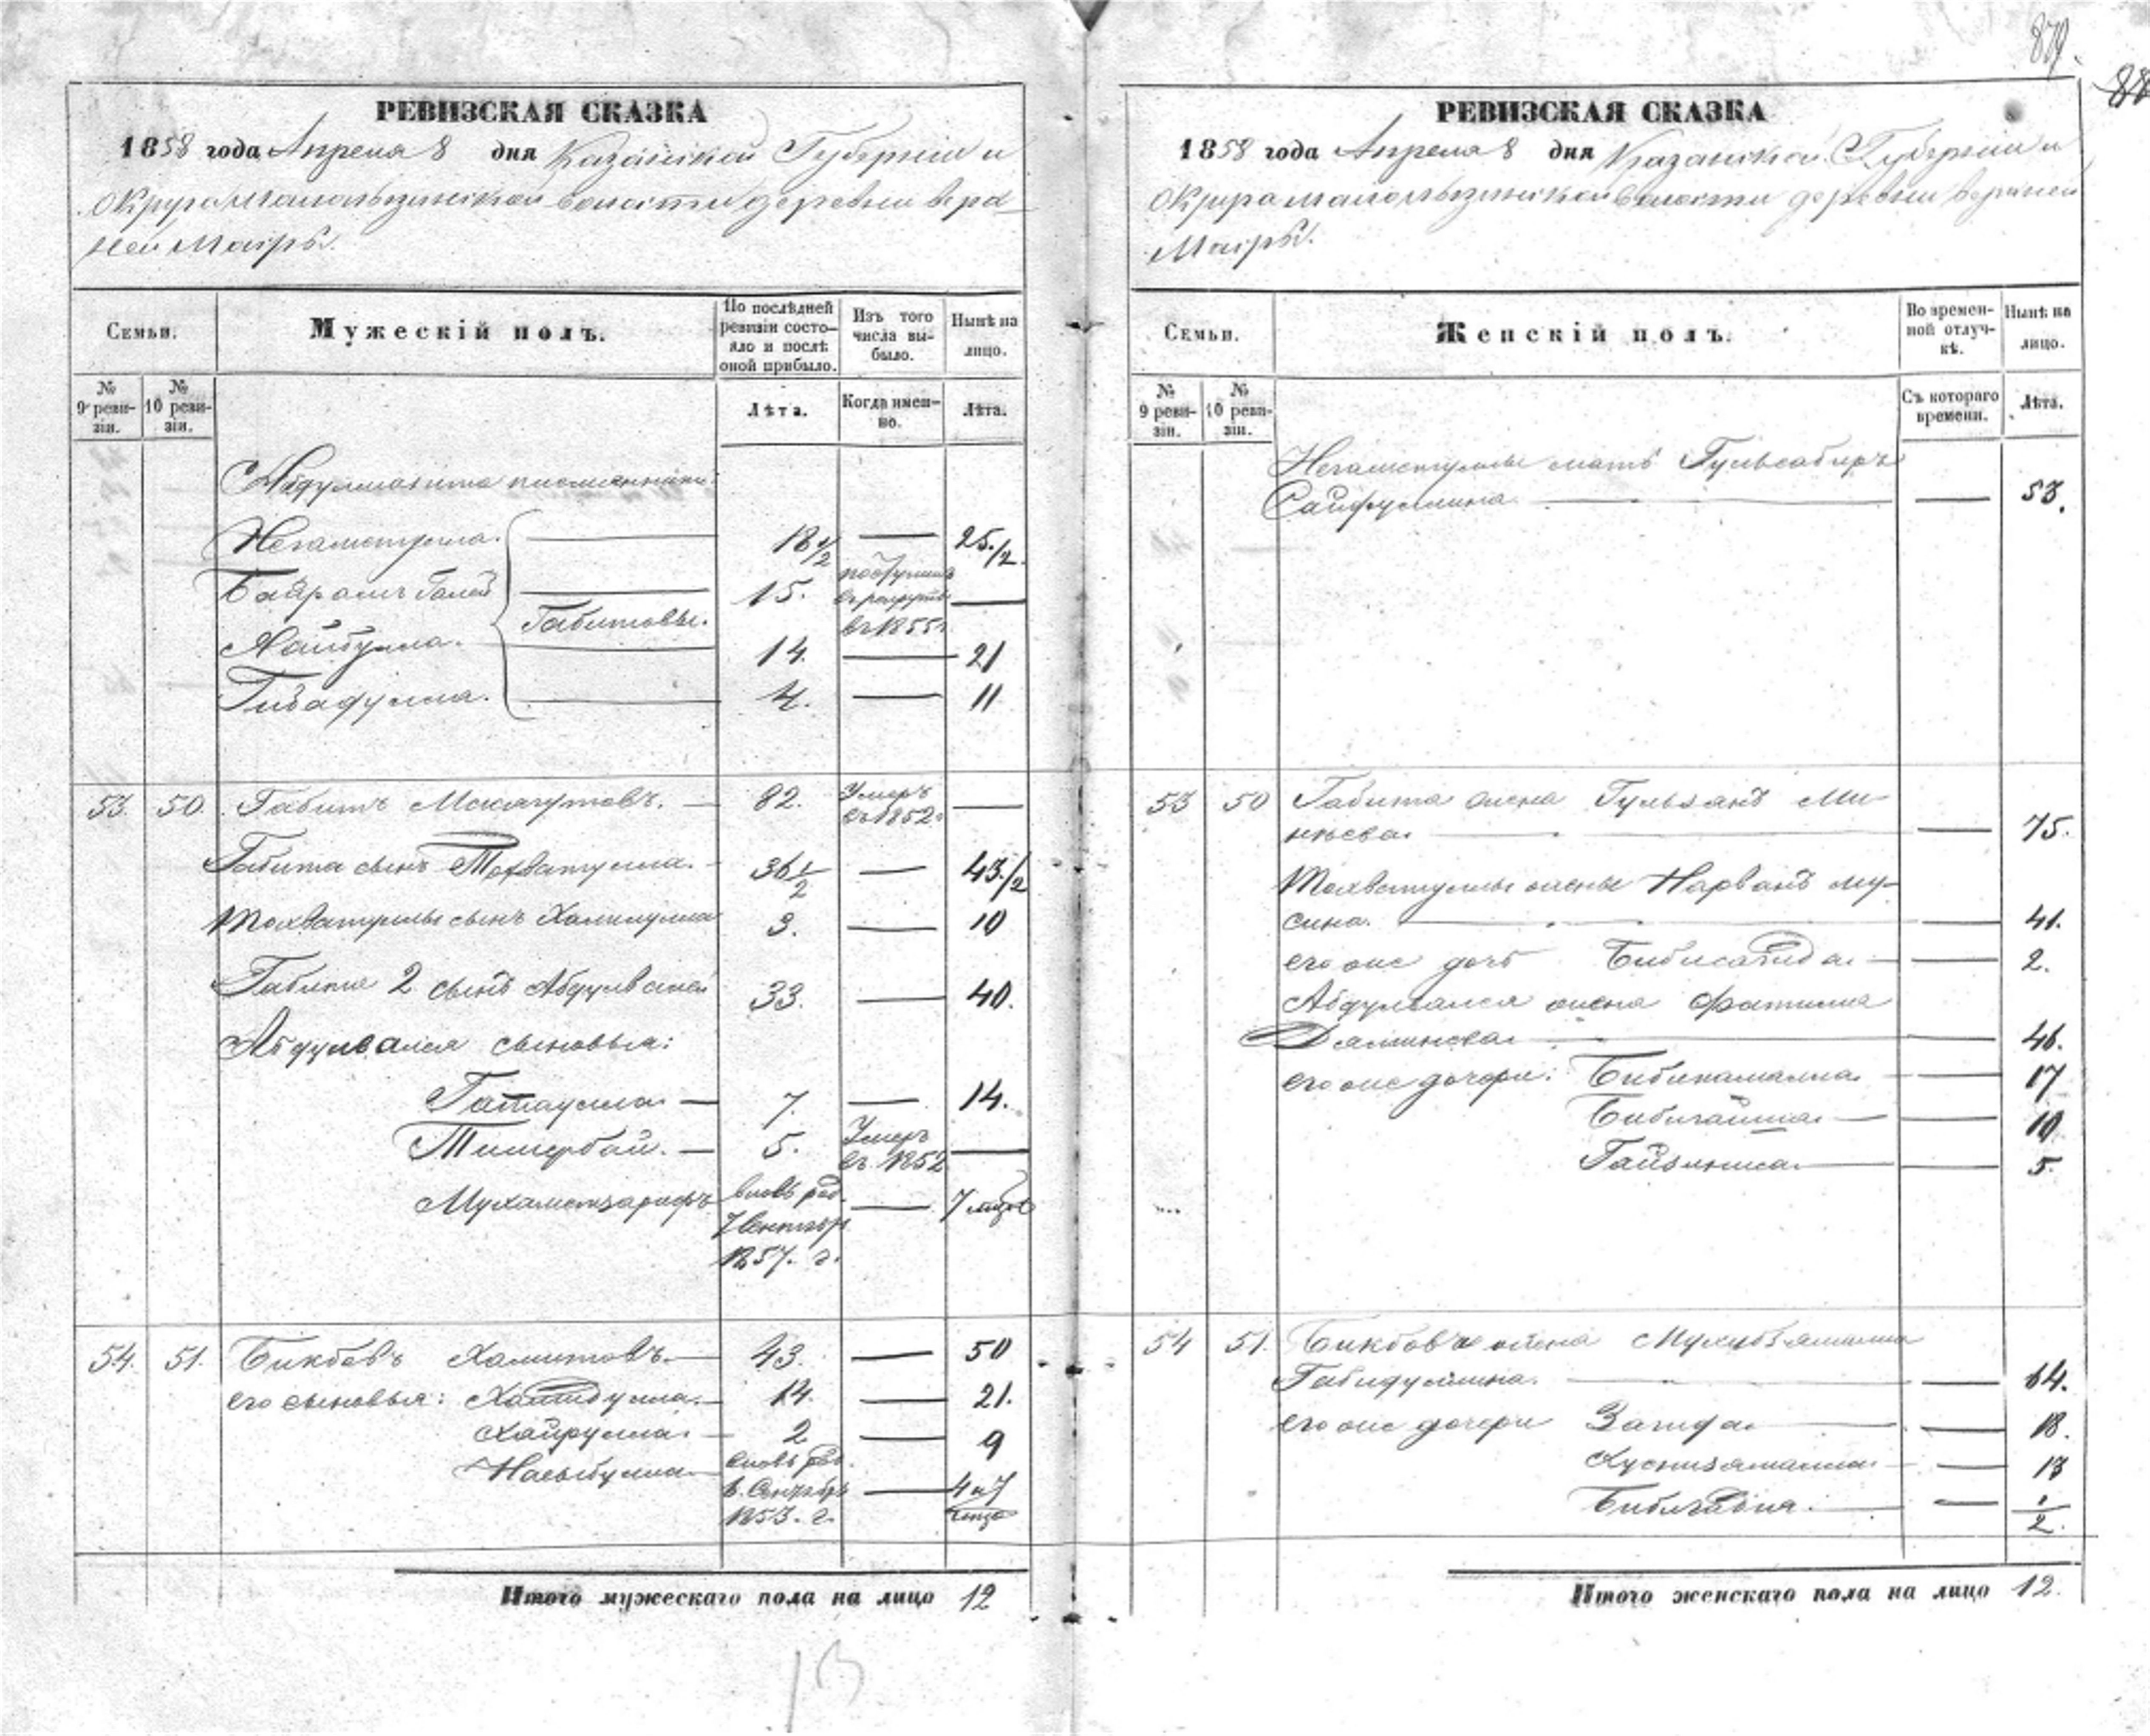 879.
88
РЕВИЗСКАЯ СКАЗКА
1858 года Апреля 8 дня Казанской Губернии и
округа волости деревни верх-
ней Масры.
Семьи.
Мужескій полъ.
По послѣдней ревизіи состояло и послѣ оной прибыло.
Изъ того числа выбыло.
Нынѣ на лицо.
№ 9 ревизіи.
№ 10 ревизіи.
Лѣта.
Когда именно.
Лѣта.
Негаметулла. 18 1/2 — 25 1/2.
15. поступилъ в рекруты въ 1855 г. —
Габитовы.
14. — 21
Гибадулла. 4. — 11
53. 50. Габитъ Максютовъ. — 82. Умеръ въ 1852 г. —
Габита сынъ Тохватулла. — 36 1/2 — 43 1/2
Тохватуллы сынъ Халиулла 3. — 10
Габита 2 сынъ Абдулвалей 33. — 40.
Абдулвалея сыновья:
Гатаулла — 7. — 14.
Тимербай. — 5. Умеръ въ 1852 —
Мухаметзарифъ вновь род. — 7 мѣсяц
1857. г.
54. 51. Бикбовъ Хамитовъ. — 43. — 50
его сыновья: Хамидулла. — 14. — 21.
Хайрулла. — 2 — 9
Насыбулла — вновь род. — 4 и 7
в. Сентябрѣ
1853. г.
Итого мужескаго пола на лицо 12
РЕВИЗСКАЯ СКАЗКА
1858 года Апреля 8 дня Казанской Губернии и
округа волости деревни верхней
Масры.
Семьи.
Женскій полъ.
Во временной отлучкѣ.
Нынѣ на лицо.
№ 9 ревизіи.
№ 10 ревизіи.
Съ котораго времени.
Лѣта.
Негаметуллы мать Гульсабиръ
Сайфуллина — — 53.
53 50 Габита жена Гульзанъ Ми-
нѣева. — — 75.
Тохватуллы жены Марванъ Му-
сина. — — 41.
его же дочь Бибисагида — — 2.
Абдулвалея жена Фатима
— — 46.
его же дочери: Бибикамала — — 17
Бибигайша — — 10
Гайзиниса — — 5.
54 51. Бикбова жена
Габидуллина. — — 64.
его же дочери Загида — — 18.
Хуснизямала — — 13
— — 1/2.
Итого женскаго пола на лицо 12.